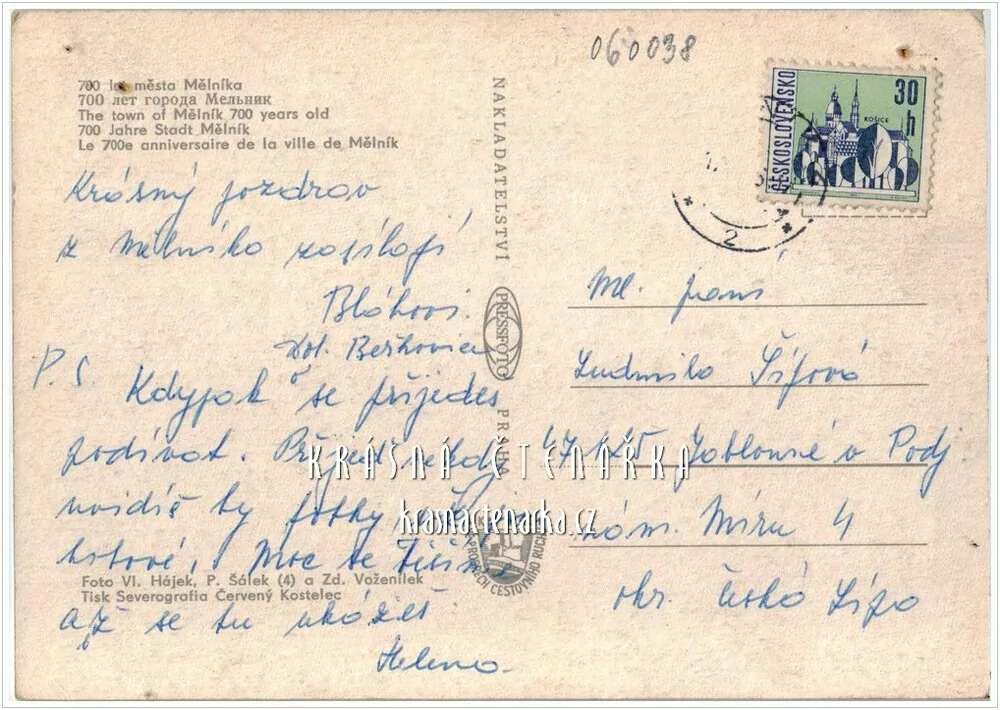 060038
700 let města Mělníka
700 лет города Мельник
The town of Mělník 700 years old
700 Jahre Stadt Mělník
Le 700e anniversaire de la ville de Mělník
Krásný pozdrav
z Mělníka zasílají
Bláhovi.
Dol. Beřkovice
P.S. Kdypak se přijedeš
podívat. Přijeď někdy
uvidíš ty fotky
Moc se těšíme
až se tu ukážeš.
Helena.
NAKLADATELSTVÍ
PRESSFOTO
PRAHA
ČESKOSLOVENSKO
30
h
KOŠICE
2
Ml. paní
Ludmila Šífová
471 25 Jablonné v Podj
nám. Míru 4
okr. Česká Lípa
KRÁSNÁ ČTENÁŘKA
krasnactenarka.cz
CESTOVNÍHO RUCHU
Foto Vl. Hájek, P. Šálek (4) a Zd. Voženílek
Tisk Severografia Červený Kostelec